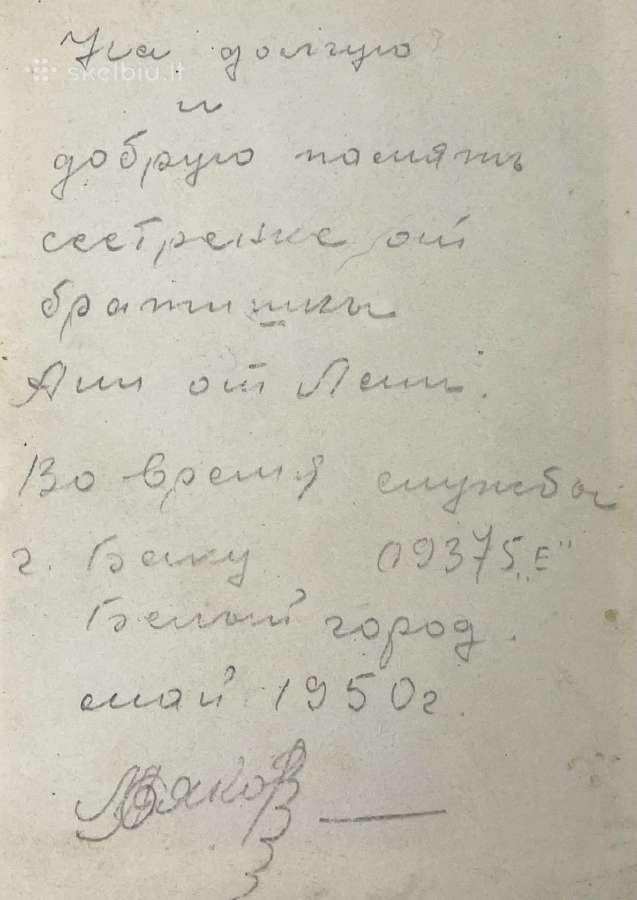 На долгую
skelbiu.lt
и
добрую память
сестренке от
братишки
Ани от Лени.
Во время службы
г. Баку 09375 „Е"
Белый город.
май 1950г.